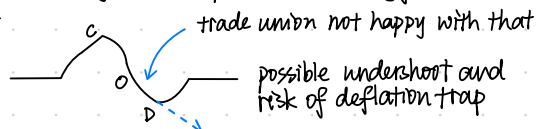 trade union not happy with that
C
O
D
possible undershoot and
risk of deflation trap